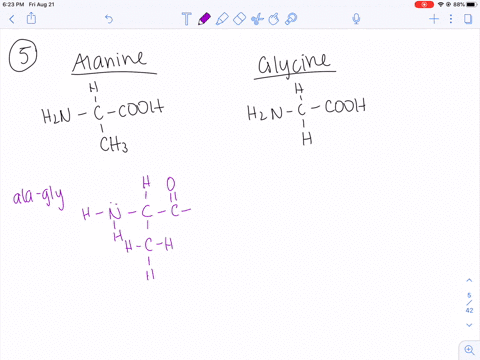 6:23 PM Fri Aug 21
88%
5
Alanine
H
H2N - C - COOH
CH3
Glycine
H
H2N - C - COOH
H
ala-gly
H O
H - N - C - C -
H H - C - H
5
/
42